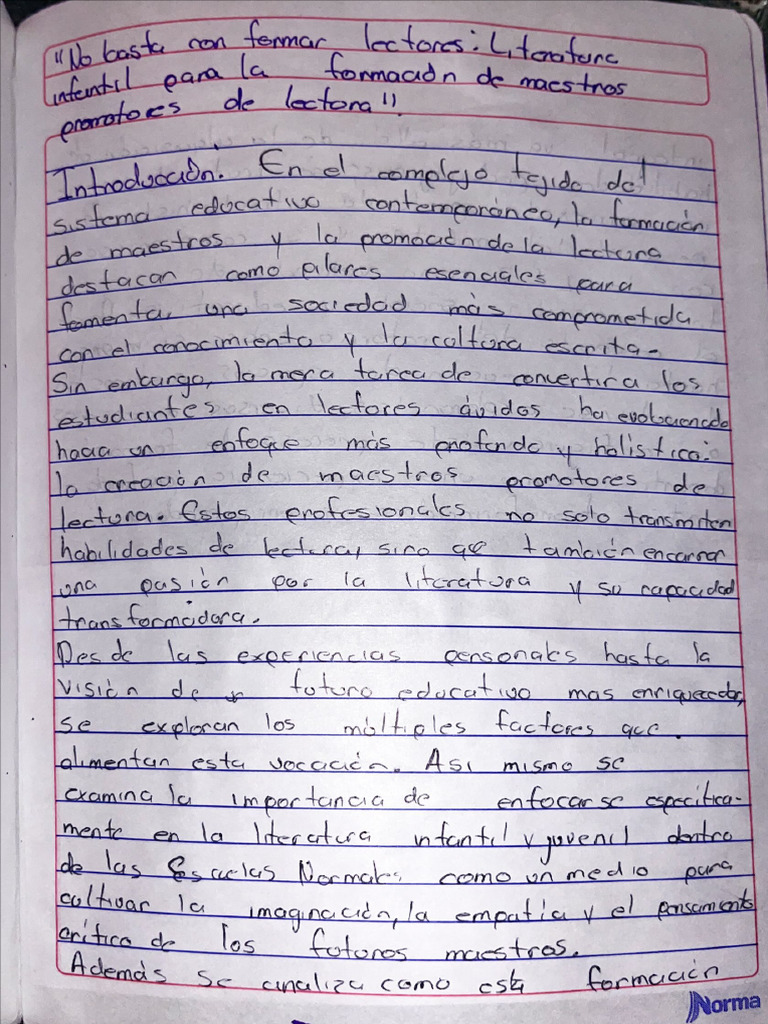 "No basta con formar lectores: Literatura
infantil para la formación de maestros
promotores de lectura".
Introducción: En el complejo tejido del
sistema educativo contemporáneo, la formación
de maestros y la promoción de la lectura
destacan como pilares esenciales para
fomentar una sociedad más comprometida
con el conocimiento y la cultura escrita.
Sin embargo, la mera tarea de convertir a los
estudiantes en lectores ávidos ha evolucionado
hacia un enfoque más profundo y holístico:
la creación de maestros promotores de
lectura. Estos profesionales no solo transmiten
habilidades de lectura, sino que también encarnan
una pasión por la literatura y su capacidad
transformadora.
Desde las experiencias personales hasta la
visión de un futuro educativo mas enriquecedor,
se exploran los múltiples factores que
alimentan esta vocación. Asi mismo se
examina la importancia de enfocarse específica-
mente en la literatura infantil y juvenil dentro
de las Escuelas Normales como un medio para
cultivar la imaginación, la empatía y el pensamiento
crítico de los futuros maestros.
Además se analiza como está formación
Norma